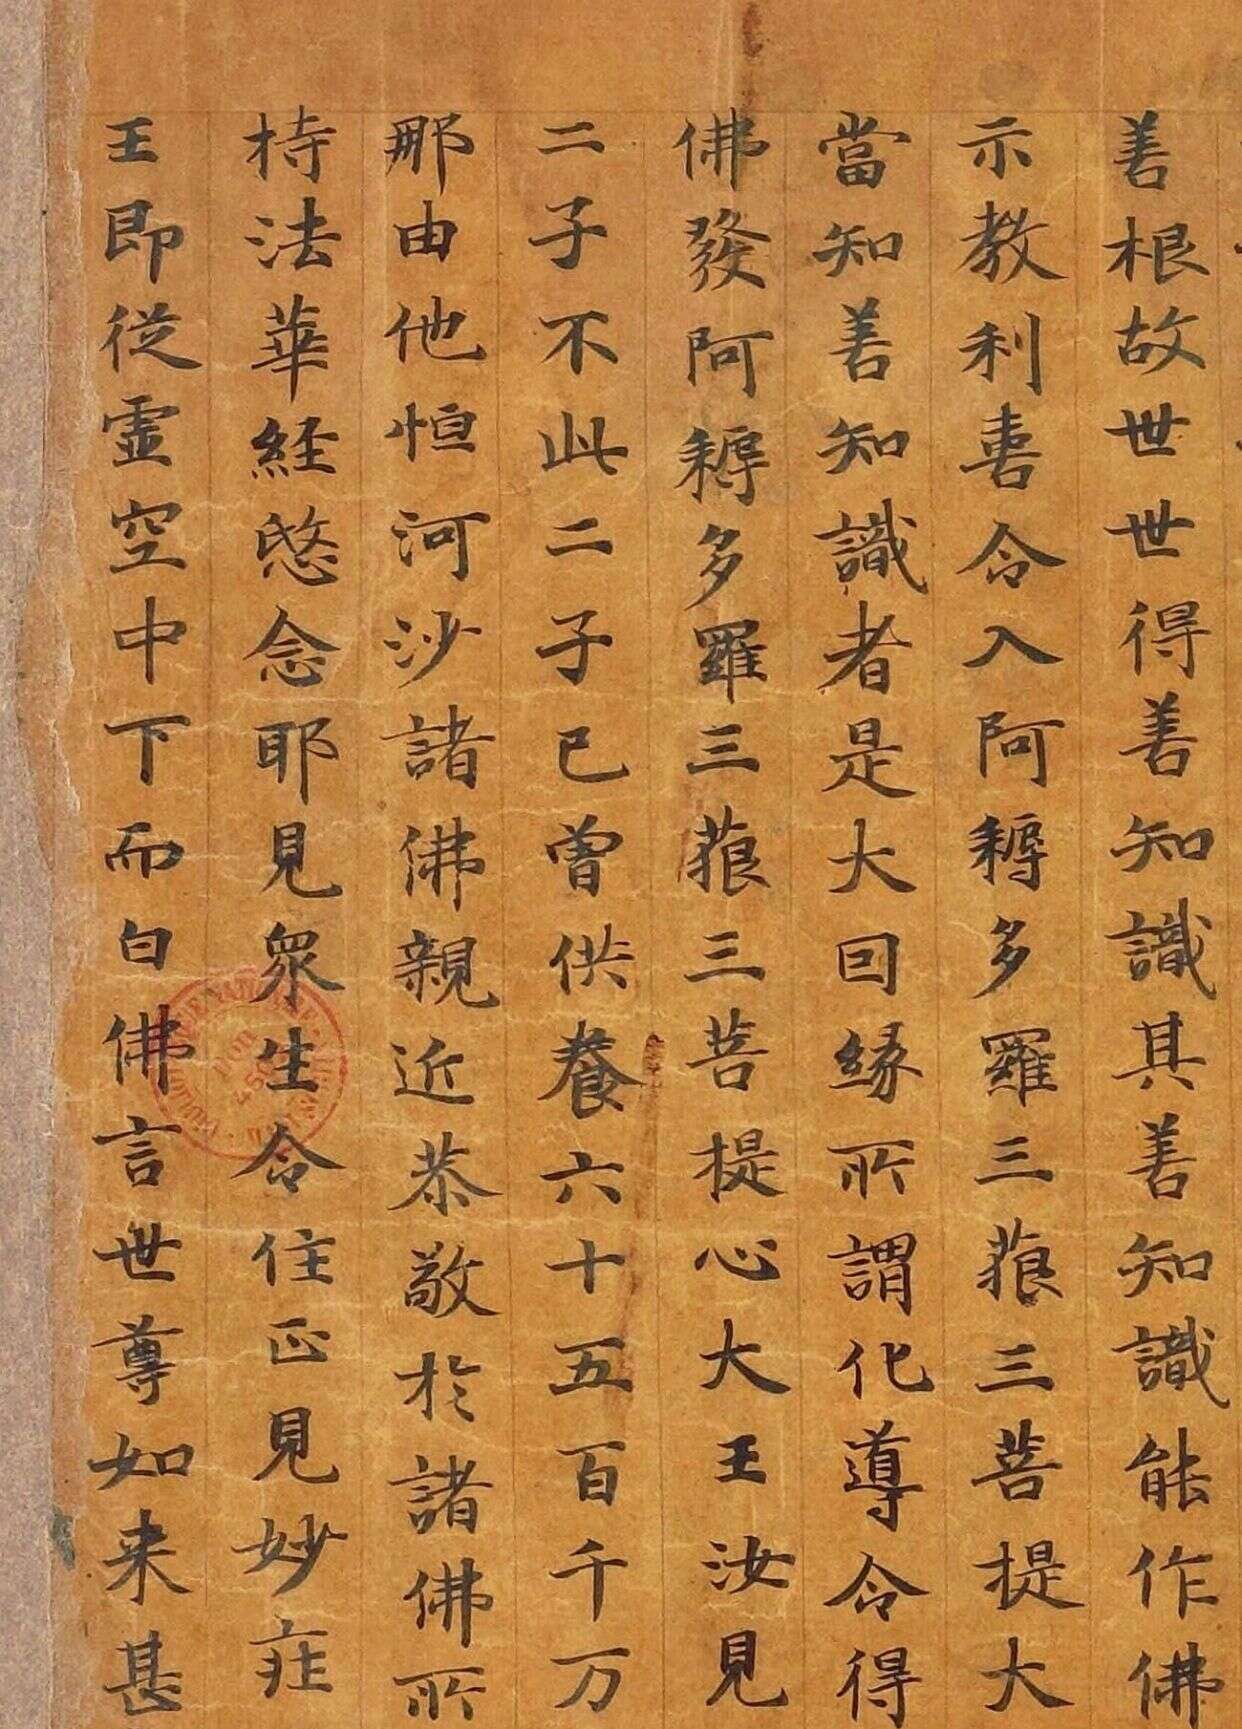 善根故世世得善知識其善知識能作佛
示教利喜令入阿耨多羅三藐三菩提大
當知善知識者是大囙緣所謂化導令得
佛發阿耨多羅三藐三菩提心大王汝見
二子不此二子已曾供養六十五百千万
那由他恒河沙諸佛親近恭敬於諸佛所
持法華經愍念耶見眾生令住正見妙庄
王即從虛空中下而白佛言世尊如来甚